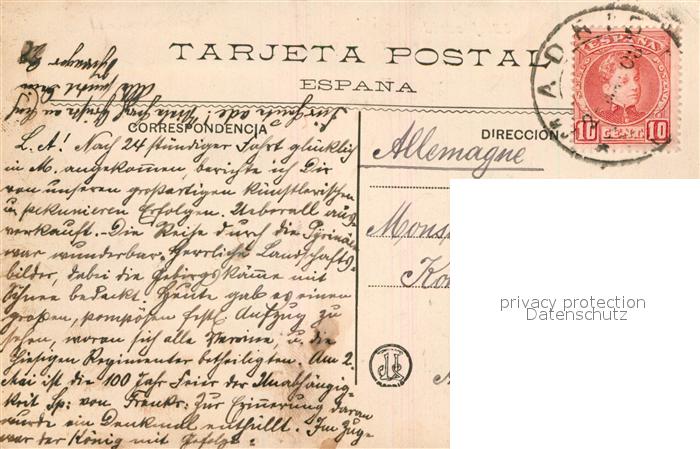 TARJETA POSTAL
ESPAÑA
CORRESPONDENCIA
DIRECCION
MADRID
ESPAÑA
10 CENT. 10
Allemagne
L. A! Nach 24 stündiger Fahrt glücklich
in M. angekommen, berichte ich Dir
von unseren großartigen künstlerischen
u. pekunieren Erfolgen. Ueberall aus-
verkauft. Die Reise durch die Pyrinäen
war wunderbar. Herrliche Landschafts-
bilder, dabei die Gebirgskämme mit
Schnee bedeckt. Heute gab es einen
großen, pompösen festl. Aufzug zu
sehen, woran sich alle Vereine, u. die
hiesigen Regimenter betheiligten. Am 2.
Mai ist die 100 Jahr Feier der Unabhängig-
keit Sp: von Frankr: Zur Erinnerung daran
wurde ein Denkmal enthüllt. Im Zuge
war der König mit Gefolge.
Für heute ade,
Alle
Mons
privacy protection
Datenschutz